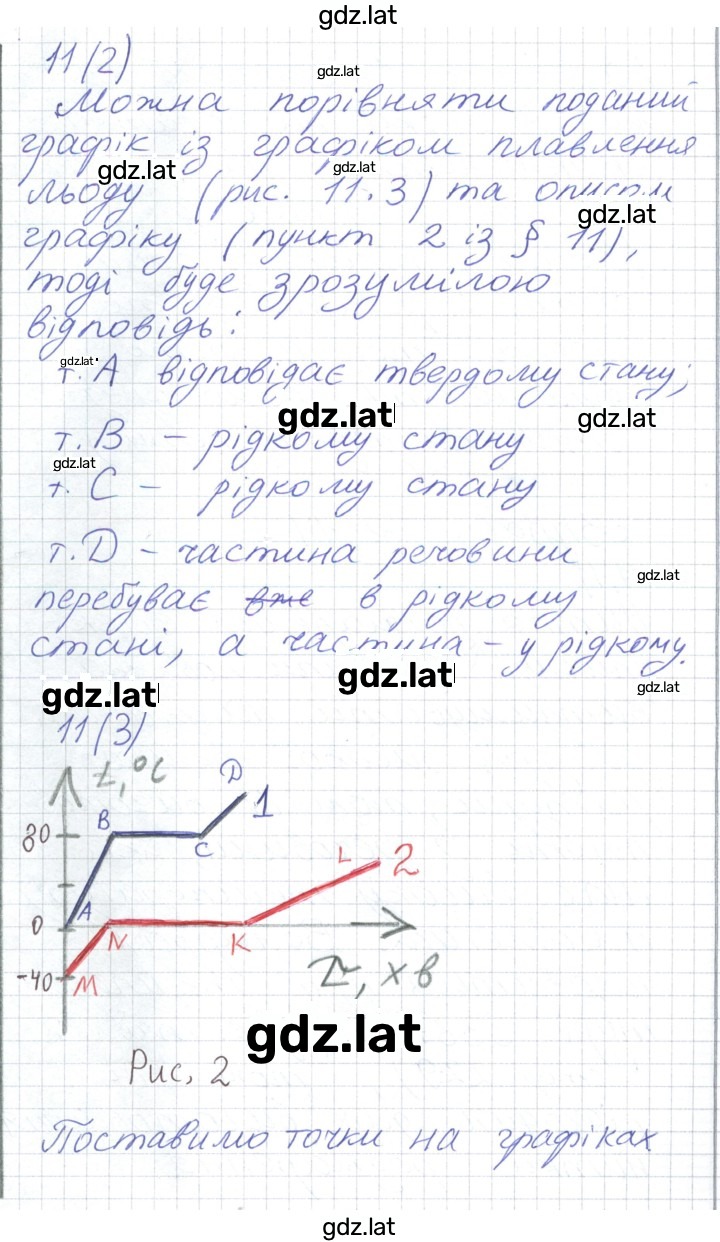 gdz.lat
11(2)
gdz.lat
Можна порівняти поданий
графік із графіком плавлення
gdz.lat gdz.lat
льоду (рис. 11.3) та описом
gdz.lat
графіку (пункт 2 із § 11),
тоді буде зрозумілою
відповідь:
gdz.lat
т. А відповідає твердому стану;
gdz.lat gdz.lat
т. В – рідкому стану
gdz.lat
т. С – рідкому стану
т. D – частина речовини
gdz.lat
перебуває вже в рідкому
стані, а частина – у рідкому.
gdz.lat
gdz.lat gdz.lat
11(3)
t, °C
D
1
B
80
C
L 2
A
0
N K
-40 M
τ, хв
gdz.lat
Рис, 2
Поставимо точки на графіках
gdz.lat